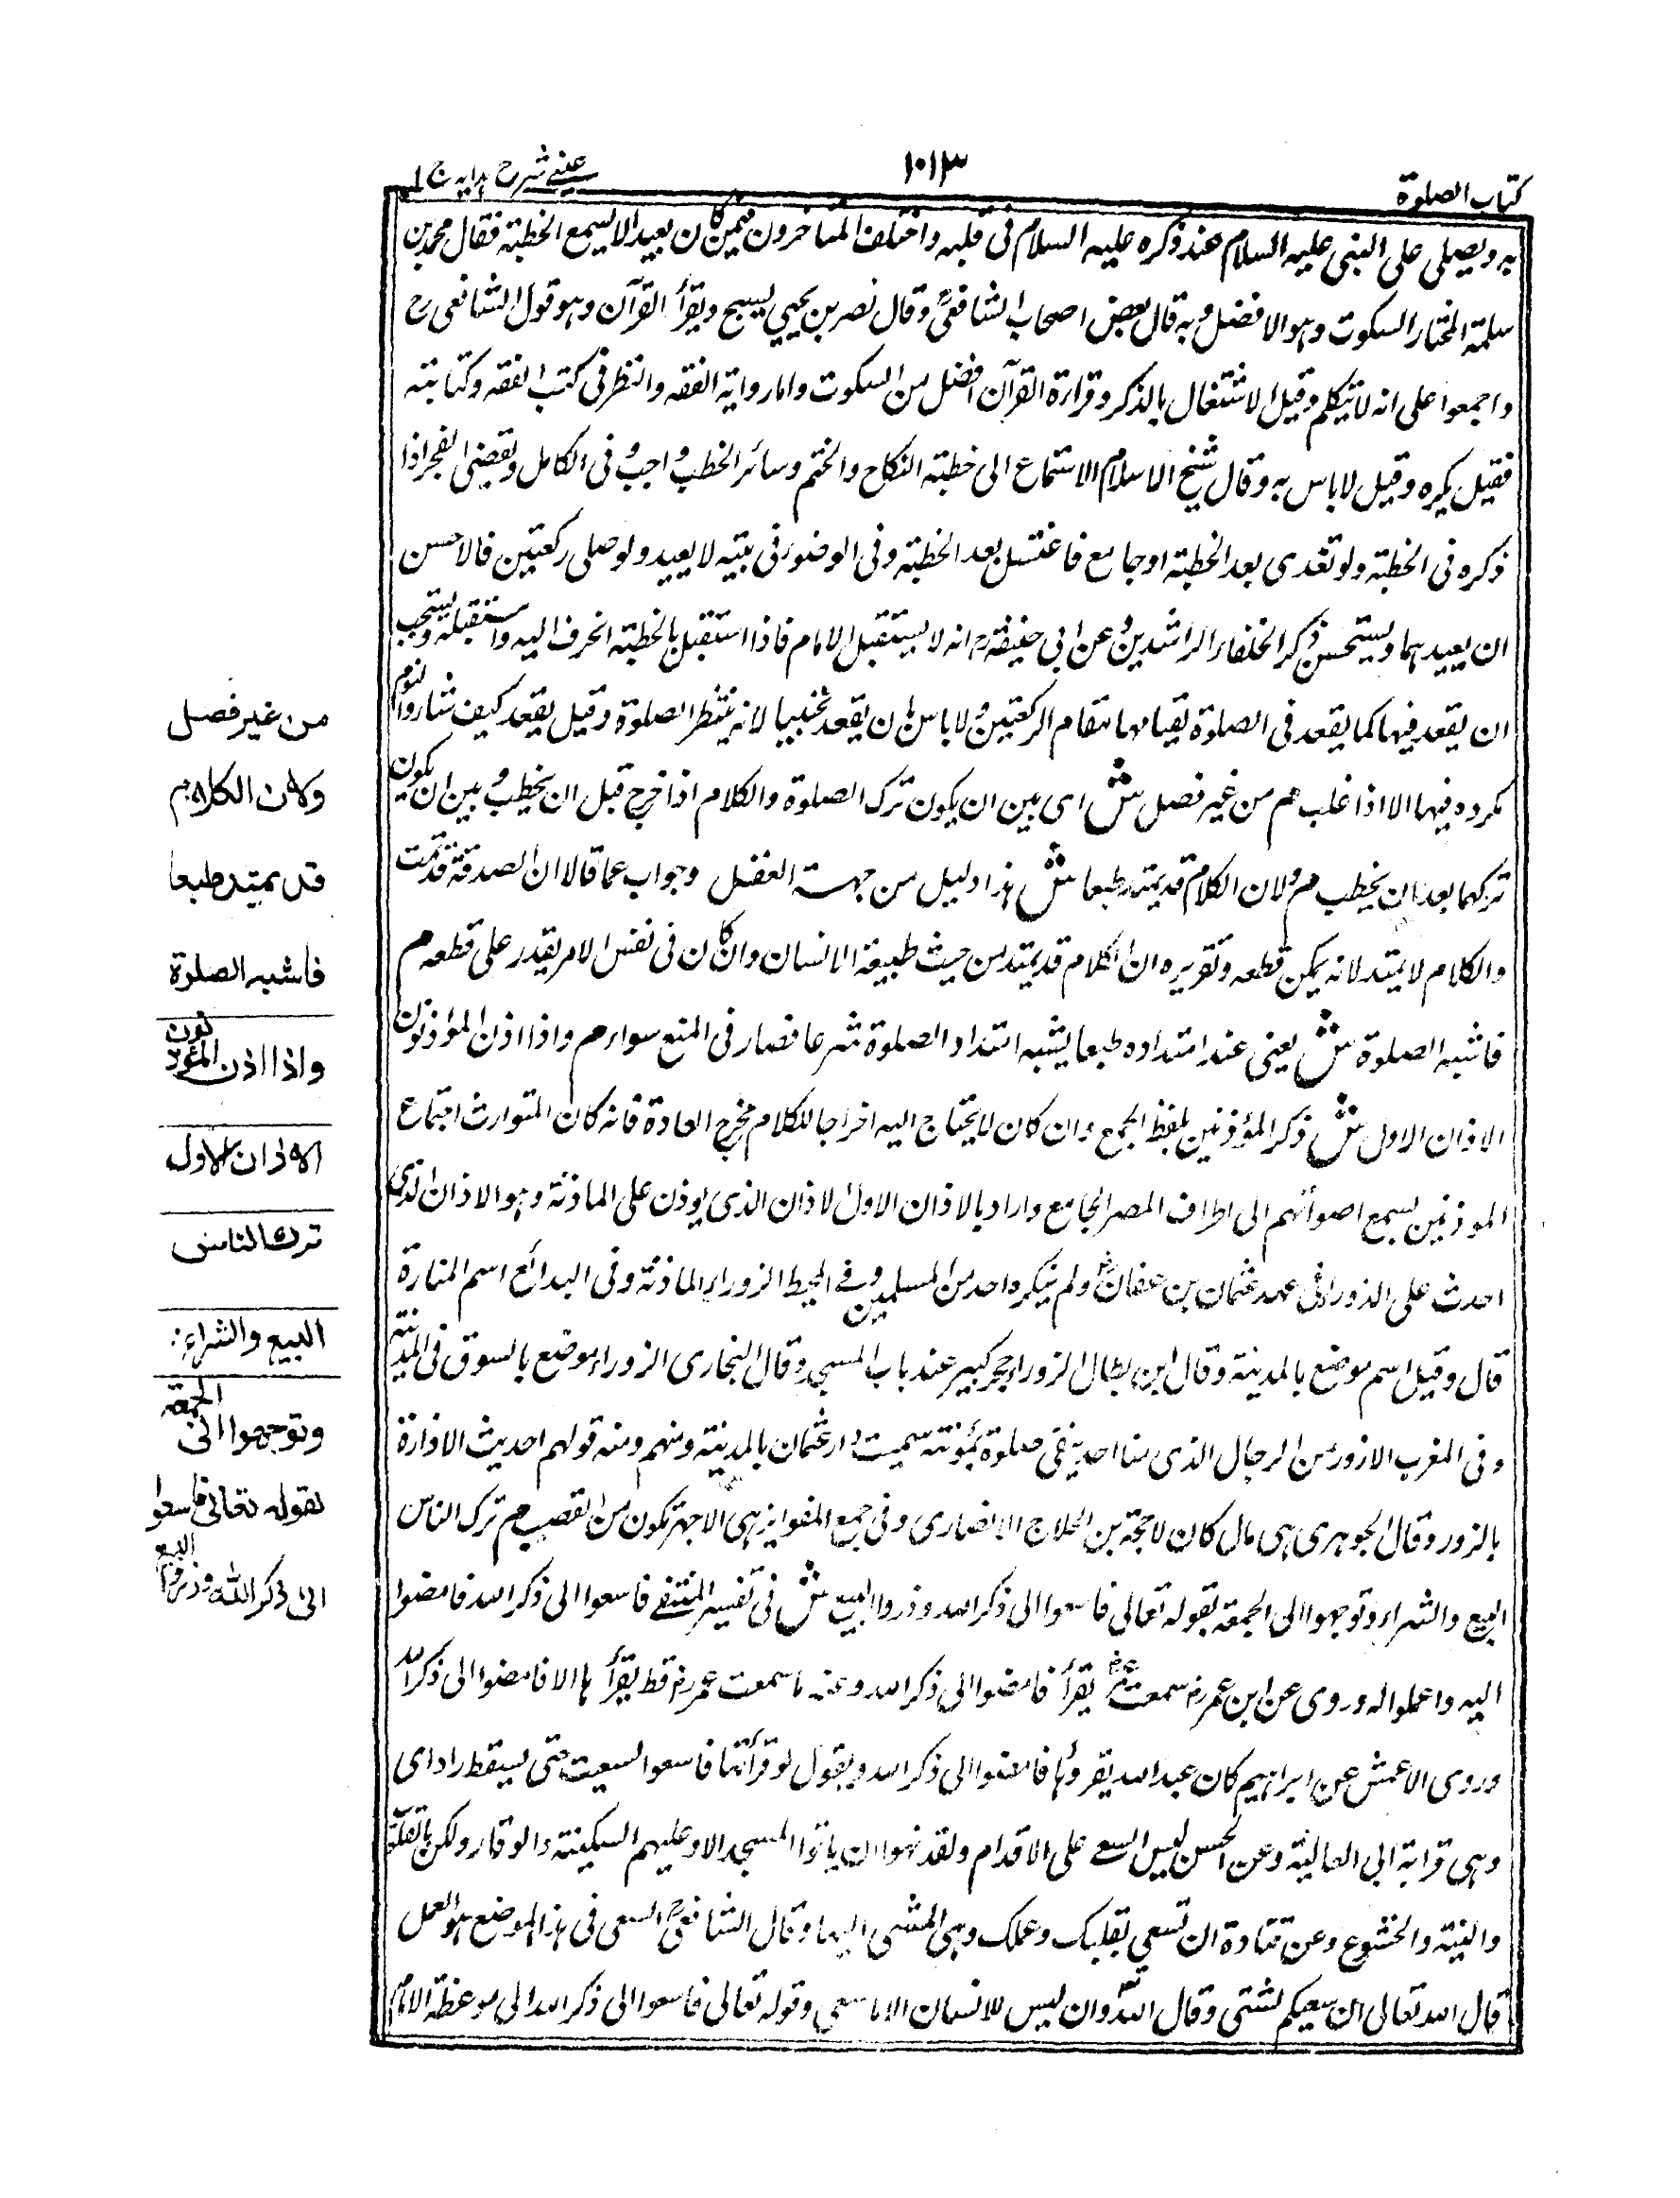 كتاب الصلوة
١٠١٣
عينى شرح هدايه ج ١
به ويصلى على النبى عليه السلام عند ذكره عليه السلام فى قلبه واختلف المتاخرون فيمن كان بعيدا لا يسمع الخطبة فقال محمد بن
سلمة المختار السكوت وهو الافضل وبه قال بعض اصحاب الشافعىؒ وقال نصر بن يحيى يسبح ويقرأ القرآن وهو قول الشافعى رح
واجمعوا على انه لا يتكلم وقيل الاشتغال بالذكر وقراءة القرآن افضل من السكوت واما رواية الفقه والنظر فى كتب الفقه وكتابته
فقيل يكره وقيل لا باس به وقال شيخ الاسلام الاستماع الى خطبة النكاح والختم وسائر الخطب واجب وفى الكامل ويقضى الفجر اذا
ذكره فى الخطبة ولو تغدى بعد الخطبة او جامع فاغتسل بعد الخطبة وفى الوضوء فى بيته لا يعيد ولو صلى ركعتين فالاحسن
ان يعيدهما ويستحسن ذكر الخلفاء الراشدين وعن ابى حنيفةؒ انه لا يستقبل الامام فاذا استقبل بالخطبة انحرف اليه واستقبله ويستحب
ان يقعد فيها كما يقعد فى الصلوة لقيامها مقام الركعتين ولا باس بان يقعد محتبيا لانه ينتظر الصلوة وقيل يقعد كيف شاء والنوم
مكروه فيها الا اذا غلب م من غير فصل ش اى بين ان يكون ترك الصلوة والكلام اذا خرج قبل ان يخطب وبين ان يكون
تركهما بعد ان يخطب م ولان الكلام قد يمتد طبعا ش هذا دليل من جهة العقل وجواب عما قالا ان الصدقة قد تمت
والكلام لا يمتد لانه يمكن قطعه وتقريره ان الكلام قد يمتد من حيث طبيعة الانسان وان كان فى نفس الامر يقدر على قطعه م
فاشبه الصلوة ش يعنى عند امتداده طبعا يشبه امتداد الصلوة شرعا فصار فى المنع سواء م واذا اذن المؤذنون
الاذان الاول ش ذكر المؤذنين بلفظ الجمع وان كان لا يحتاج اليه اخراجا للكلام مخرج العادة فانه كان المتوارث اجتماع
الموذنين ليسمع اصواتهم الى اطراف المصر الجامع واراد بالاذان الاول الاذان الذى يوذن على الماذنة وهو الاذان الذى
احدث على الزوراء فى عهد عثمان بن عفانؓ ولم ينكره احد من المسلمين وفى المحيط الزوراء الماذنة وفى البدائع اسم المنارة
قال وقيل اسم موضع بالمدينة وقال ابن بطال الزوراء حجر كبير عند باب المسجد وقال البخارى الزوراء موضع بالسوق فى المدينة
وفى المغرب الازور من الرجال الذى منا احديه فى صلوة بمؤنته سميت دار عثمان بالمدينة ومنهم ومنه قولهم احديث الاذارة
بالزور وقال الجوهرى هى مال كان لاحجة بن الحلاج الانصارى وفى جمع المفواريز هى الاجهة تكون من القصب م ترك الناس
البيع والشراء وتوجهوا الى الجمعة بقوله تعالى فاسعوا الى ذكر الله وذروا البيع ش فى تفسير النسفى فاسعوا الى ذكر الله فامضوا
اليه واعملوا له وروى عن ابن عمر رض سمعت عمر رض يقرأ فامضوا الى ذكر الله وعنه ما سمعت عمر رض قط يقرأ ها الا فامضوا الى ذكر الله
وروى الاعمش عن ابراهيم كان عبد الله يقروها فامضوا الى ذكر الله ويقول لو قرأتها فاسعوا لسعيت حتى يسقط رداى
وهى قراءة ابى العالية وعن الحسن ليس السعى على الاقدام ولقد نهوا ان ياتوا المسجد الا وعليهم السكينة والوقار ولكن بالقلوب
والنية والخشوع وعن قتادة ان تسعى بقلبك وعملك وهى المشى اليها وقال الشافعىؒ السعى فى هذا الموضع هو العمل
قال الله تعالى ان سعيكم لشتى وقال اللهؔ وان ليس للانسان الا ما سعى وقوله تعالى فاسعوا الى ذكر الله الى موعظة الامام
من غير فصل
ولان الكلام
قد يمتد طبعا
فاشبه الصلوة
واذا اذن المؤذنون
الاذان الاول
ترك الناس
البيع والشراء
وتوجهوا الى الجمعة
لقوله تعالى فاسعوا
الى ذكر الله وذروا البيع